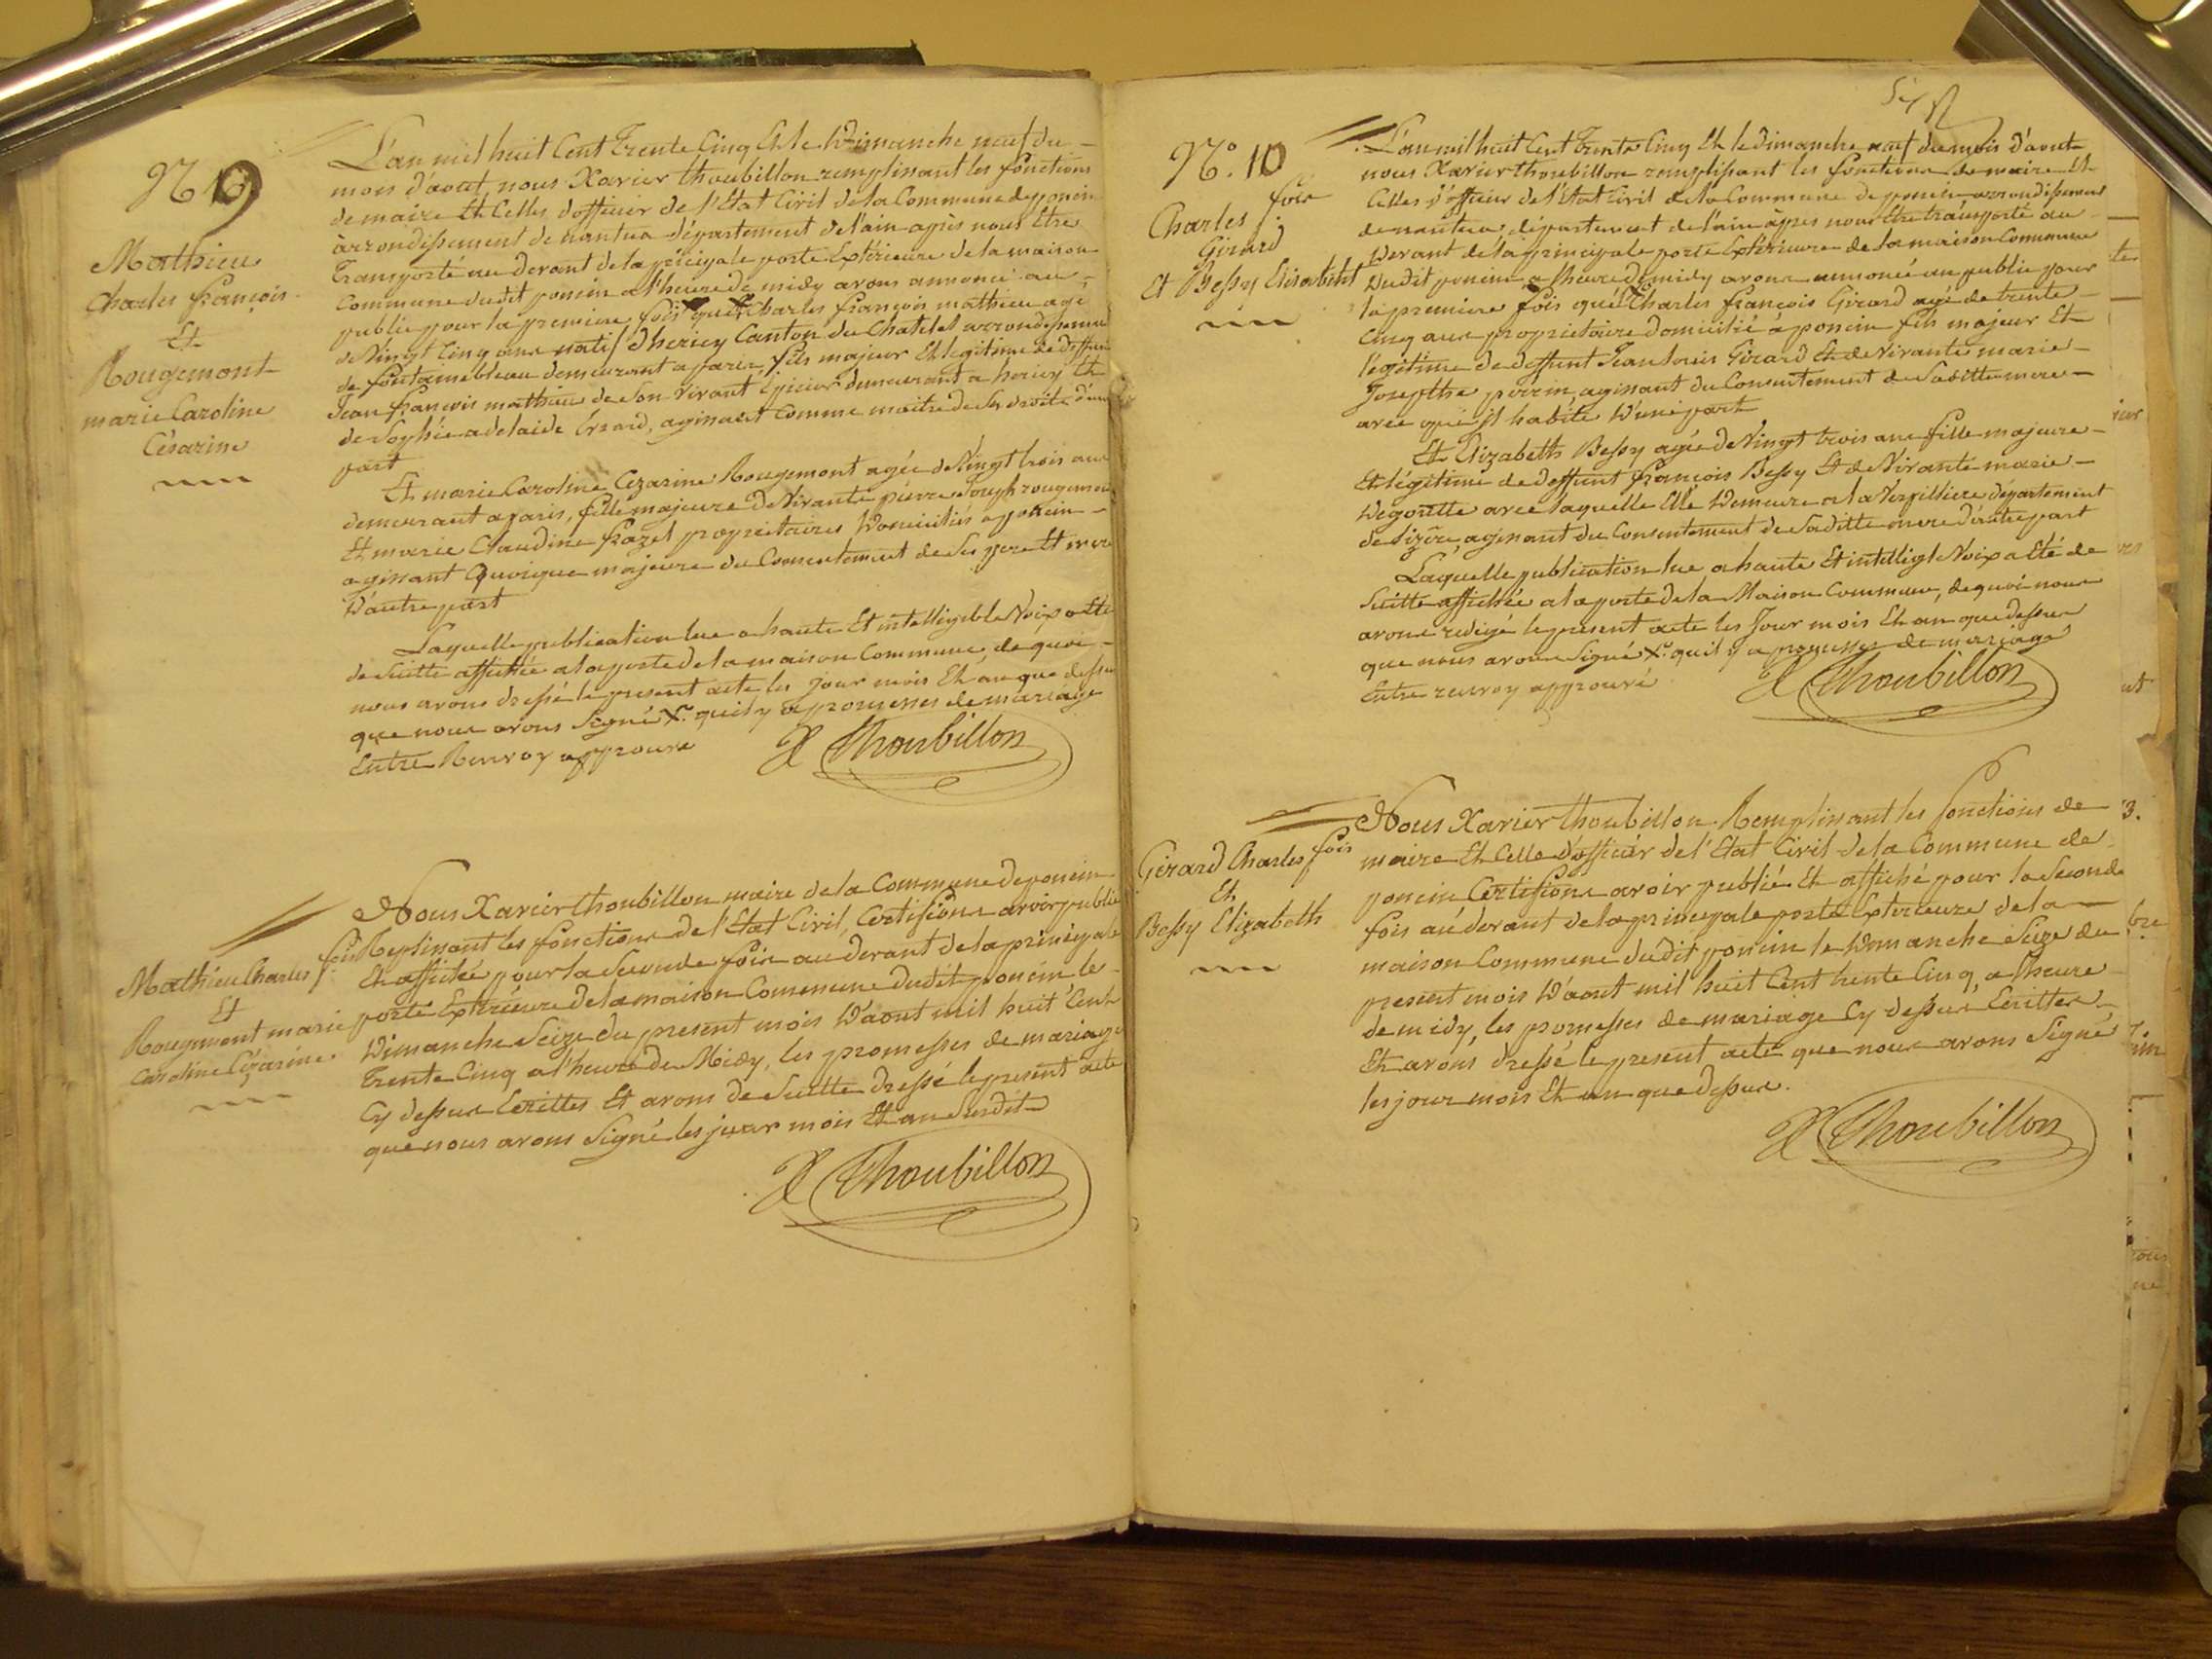 N 9
Mathieu
Charles françois
Et
Rougemont
marie Caroline
Césarine
L'an mil huit Cent Trente Cinq Et le Dimanche neuf du
mois d'aout, nous Xavier thoubillon remplissant les fonctions
de maire Et Celles d'officier de l'Etat Civil de la Commune de poncin
arrondissement de nantua département de l'ain après nous Etre
Transporté au devant de la principale porte Extérieure de la maison
Commune dudit poncin a l'heure de midy avons annoncé au
public pour la premiere fois que X Charles françois mathieu agé
de Vingt Cinq ans natif d'hericy Canton du Chatelet arrondissement
de fontainebleau demeurant a paris, fils majeur Et legitime de deffunt
Jean françois mathieu de Son Vivant Epicier demeurant a hericy Et
de Sophie adelaide Erard, agissant Comme maitre de Ses droits d'une
part
Et marie Caroline Cezarine Rougemont agée de Vingt trois ans
demeurant a paris, fille majeure de Vivants pierre Joseph rougemont
Et marie Claudine frazet propriétaires Domiciliés a poncin
agissant Quoique majeure du Consentement de Ses pere Et mere
D'autre part
Laquelle publication lue a haute Et intelligible Voix a Eté
de Suitte affichée a la porte de la maison Commune, de quoi
nous avons dressé le present acte les jour mois Et an que dessus
que nous avons Signé X. quil y a promesses de mariage
Entre Renvoy approuvé
X Thoubillon
Mathieu Charles fois
Et
Rougemont marie
Caroline Cézarine
Nous Xavier thoubillon maire de la Commune de poncin
Replissant les fonctions de l'Etat Civil, Certifions avoir publié
Et affiché pour la Seconde fois au devant de la principale
porte Extérieure de la maison Commune dudit poncin le
Dimanche Seize du present mois D'aout mil huit Cent
Trente Cinq a l'heure de Midy, les promesses de mariage
Cy dessus Ecrittes Et avons de Suitte dressé le present acte
que nous avons Signé les jour mois Et an Susdit
X Thoubillon
N°. 10
Charles fois
Girard
Et Bessy Elisabeth
L'an mil huit Cent Trente Cinq Et le Dimanche neuf du mois d'aout
nous Xavier thoubillon remplissant les fonctions de maire Et
Celles d'officier de l'Etat Civil de la Commune de poncin arrondissement
de nantua, département de l'ain après nous Etre transporté au
Devant de la principale porte Extérieure de la maison Commune
Dudit poncin a l'heure de midy avons annoncé au public pour
la premiere fois que X Charles françois Girard agé de trente
Cinq ans propriétaire domicilié à poncin fils majeur Et
légitime de deffunt Jean louis Girard Et de Vivante marie
Josephte perrin, agissant du Consentement de Saditte mere
avec qui il habite D'une part
Et Elizabeth Bessy agée de Vingt trois ans fille majeure
Et légitime de deffunt françois Bessy Et de Vivante marie
Degoutte avec laquelle Elle Demeure a la Verpilliere département
de Lizère, agissant du Consentement de Saditte mere d'autre part
Laquelle publication lue a haute Et intelligle Voix a Eté de
Suitte affichée a la porte de la Maison Commune, de quoi nous
avons redigé le present acte les Jour mois Et an que dessus
que nous avons Signé X. quil y a promesses de mariage
Entre renvoy approuvé
X Thoubillon
Girard Charles fois
Et
Bessy Elizabeth
Nous Xavier thoubillon Remplissant les fonctions de
maire Et Celle d'officier de l'Etat Civil de la Commune de
poncin Certifions avoir publié Et affiché pour la Seconde
fois au devant de la principale porte Exterieure de la
maison Commune dudit poncin le Dimanche Seize du
present mois D'aout mil huit Cent trente Cinq, a l'heure
de midy, les promesses de mariage Cy dessus Ecrittes
Et avons dressé le present acte que nous avons Signé
les jour mois Et an que dessus.
X Thoubillon